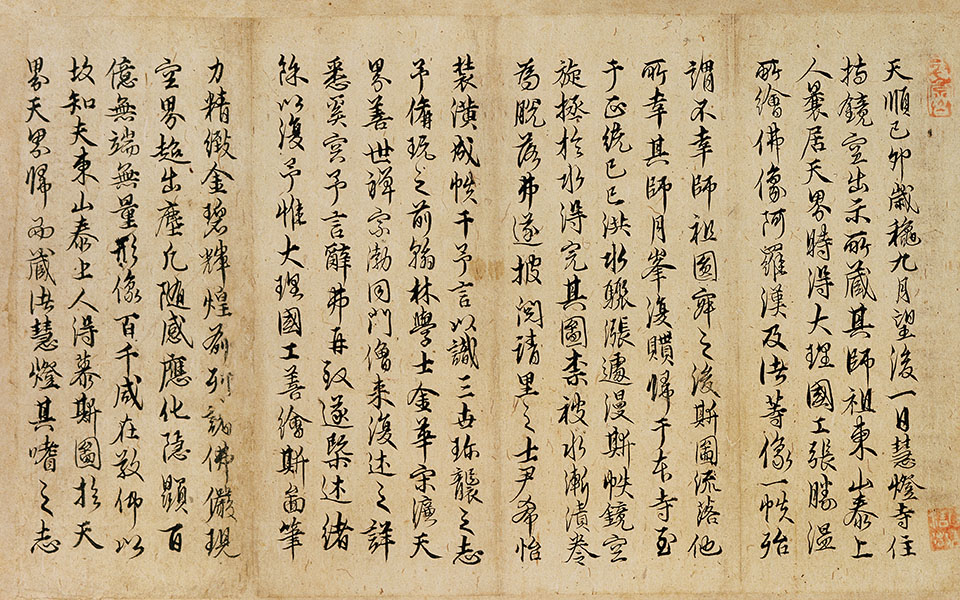 天順己卯歲穐九月望後一日慧燈寺住
持鏡空出示所藏其師祖東山泰上
人曩居天界時得大理國工張勝溫
所繪佛像阿羅漢及諸等像一帙殆
謂不幸師祖圓寂之後斯圖流落他
所幸其師月峯復贖歸于本寺至
于正統己巳洪水驟漲遽漫斯帙鏡空
旋拯於水得完其圖柰被水漸漬卷
為脫落弗遂披閱請里之士尹希怡
裝潢成帙干予言以識三世珎襲之志
予備玩之前翰林學士金華宋濂天
界善世禪宗泐同門僧来復述之詳
悉奚宜予言辭弗再致遂槩述緒
餘以復予惟大理國工善繪斯圖筆
力精緻金碧輝煌前列諸佛儼現
空界超出塵凡随感應化隐顯百
億無端無量形像百千咸在敎佛以
故知夫東山泰上人得慕斯圖於天
界天界歸而藏諸慧燈其嗜之志